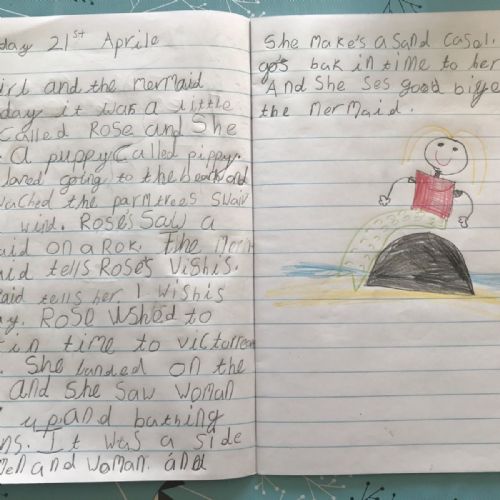 day 21st Aprile
irl and the mermaid
day it was a little
called Rose and She
. A puppy Called pippy.
loved going to the beach and
wached the parmtrees swair
wind. Rose's Saw a
aid on a Rok. The mer
aid tells Rose's Vishis.
aid tells her. I wishis
y. Rose wshed to
t in time to victorrean
. She landed on the
and She Saw woman
up and bathing
ns. It was a side
men and woman. and
She make's a sand casol.
gos bak in time to her
And She Ses good biye
the mermaid.